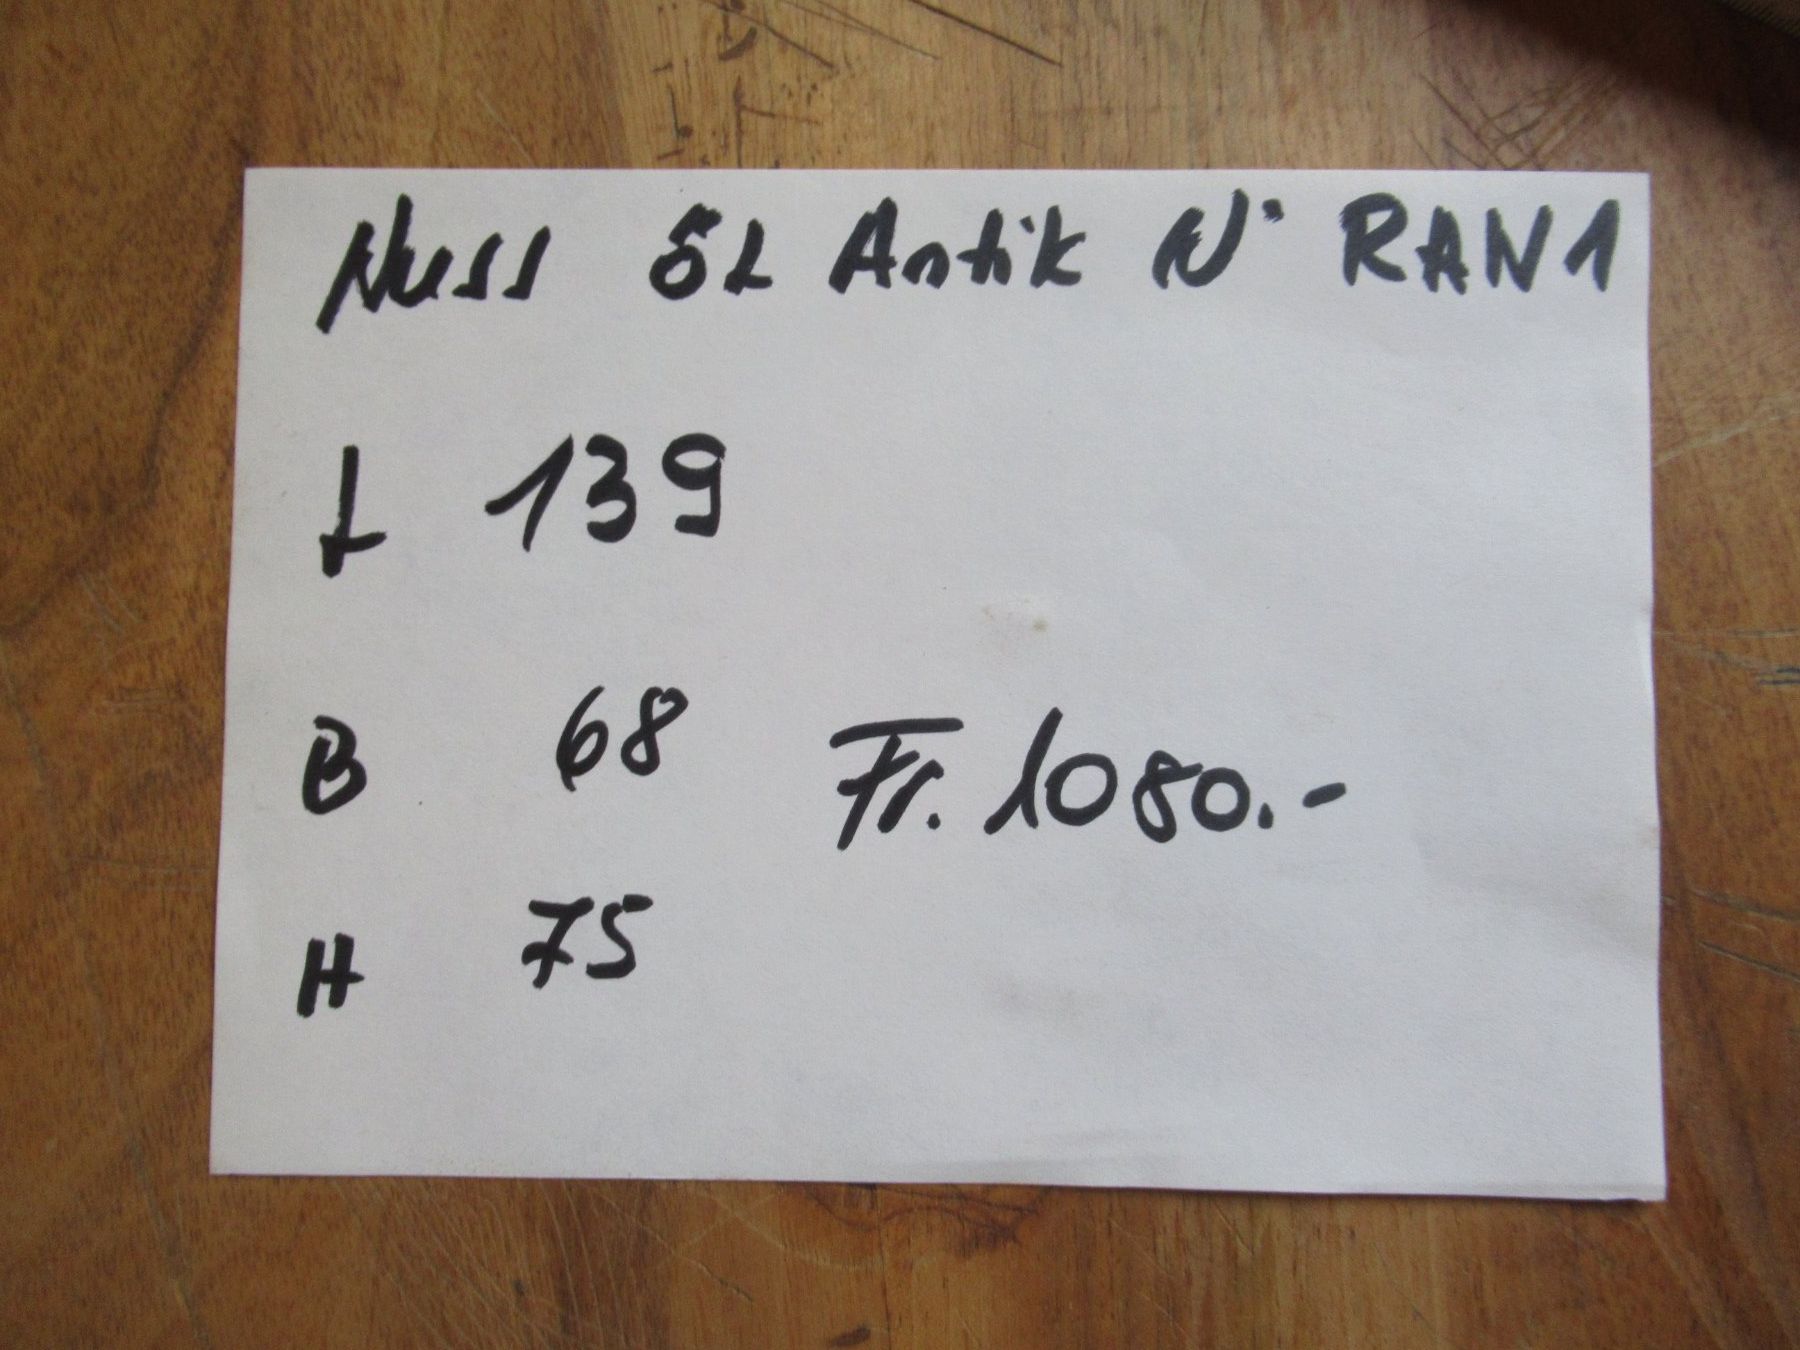 Nuss ÖL Antik N° RAN1
L 139
B 68
Fr. 1080.-
H 75